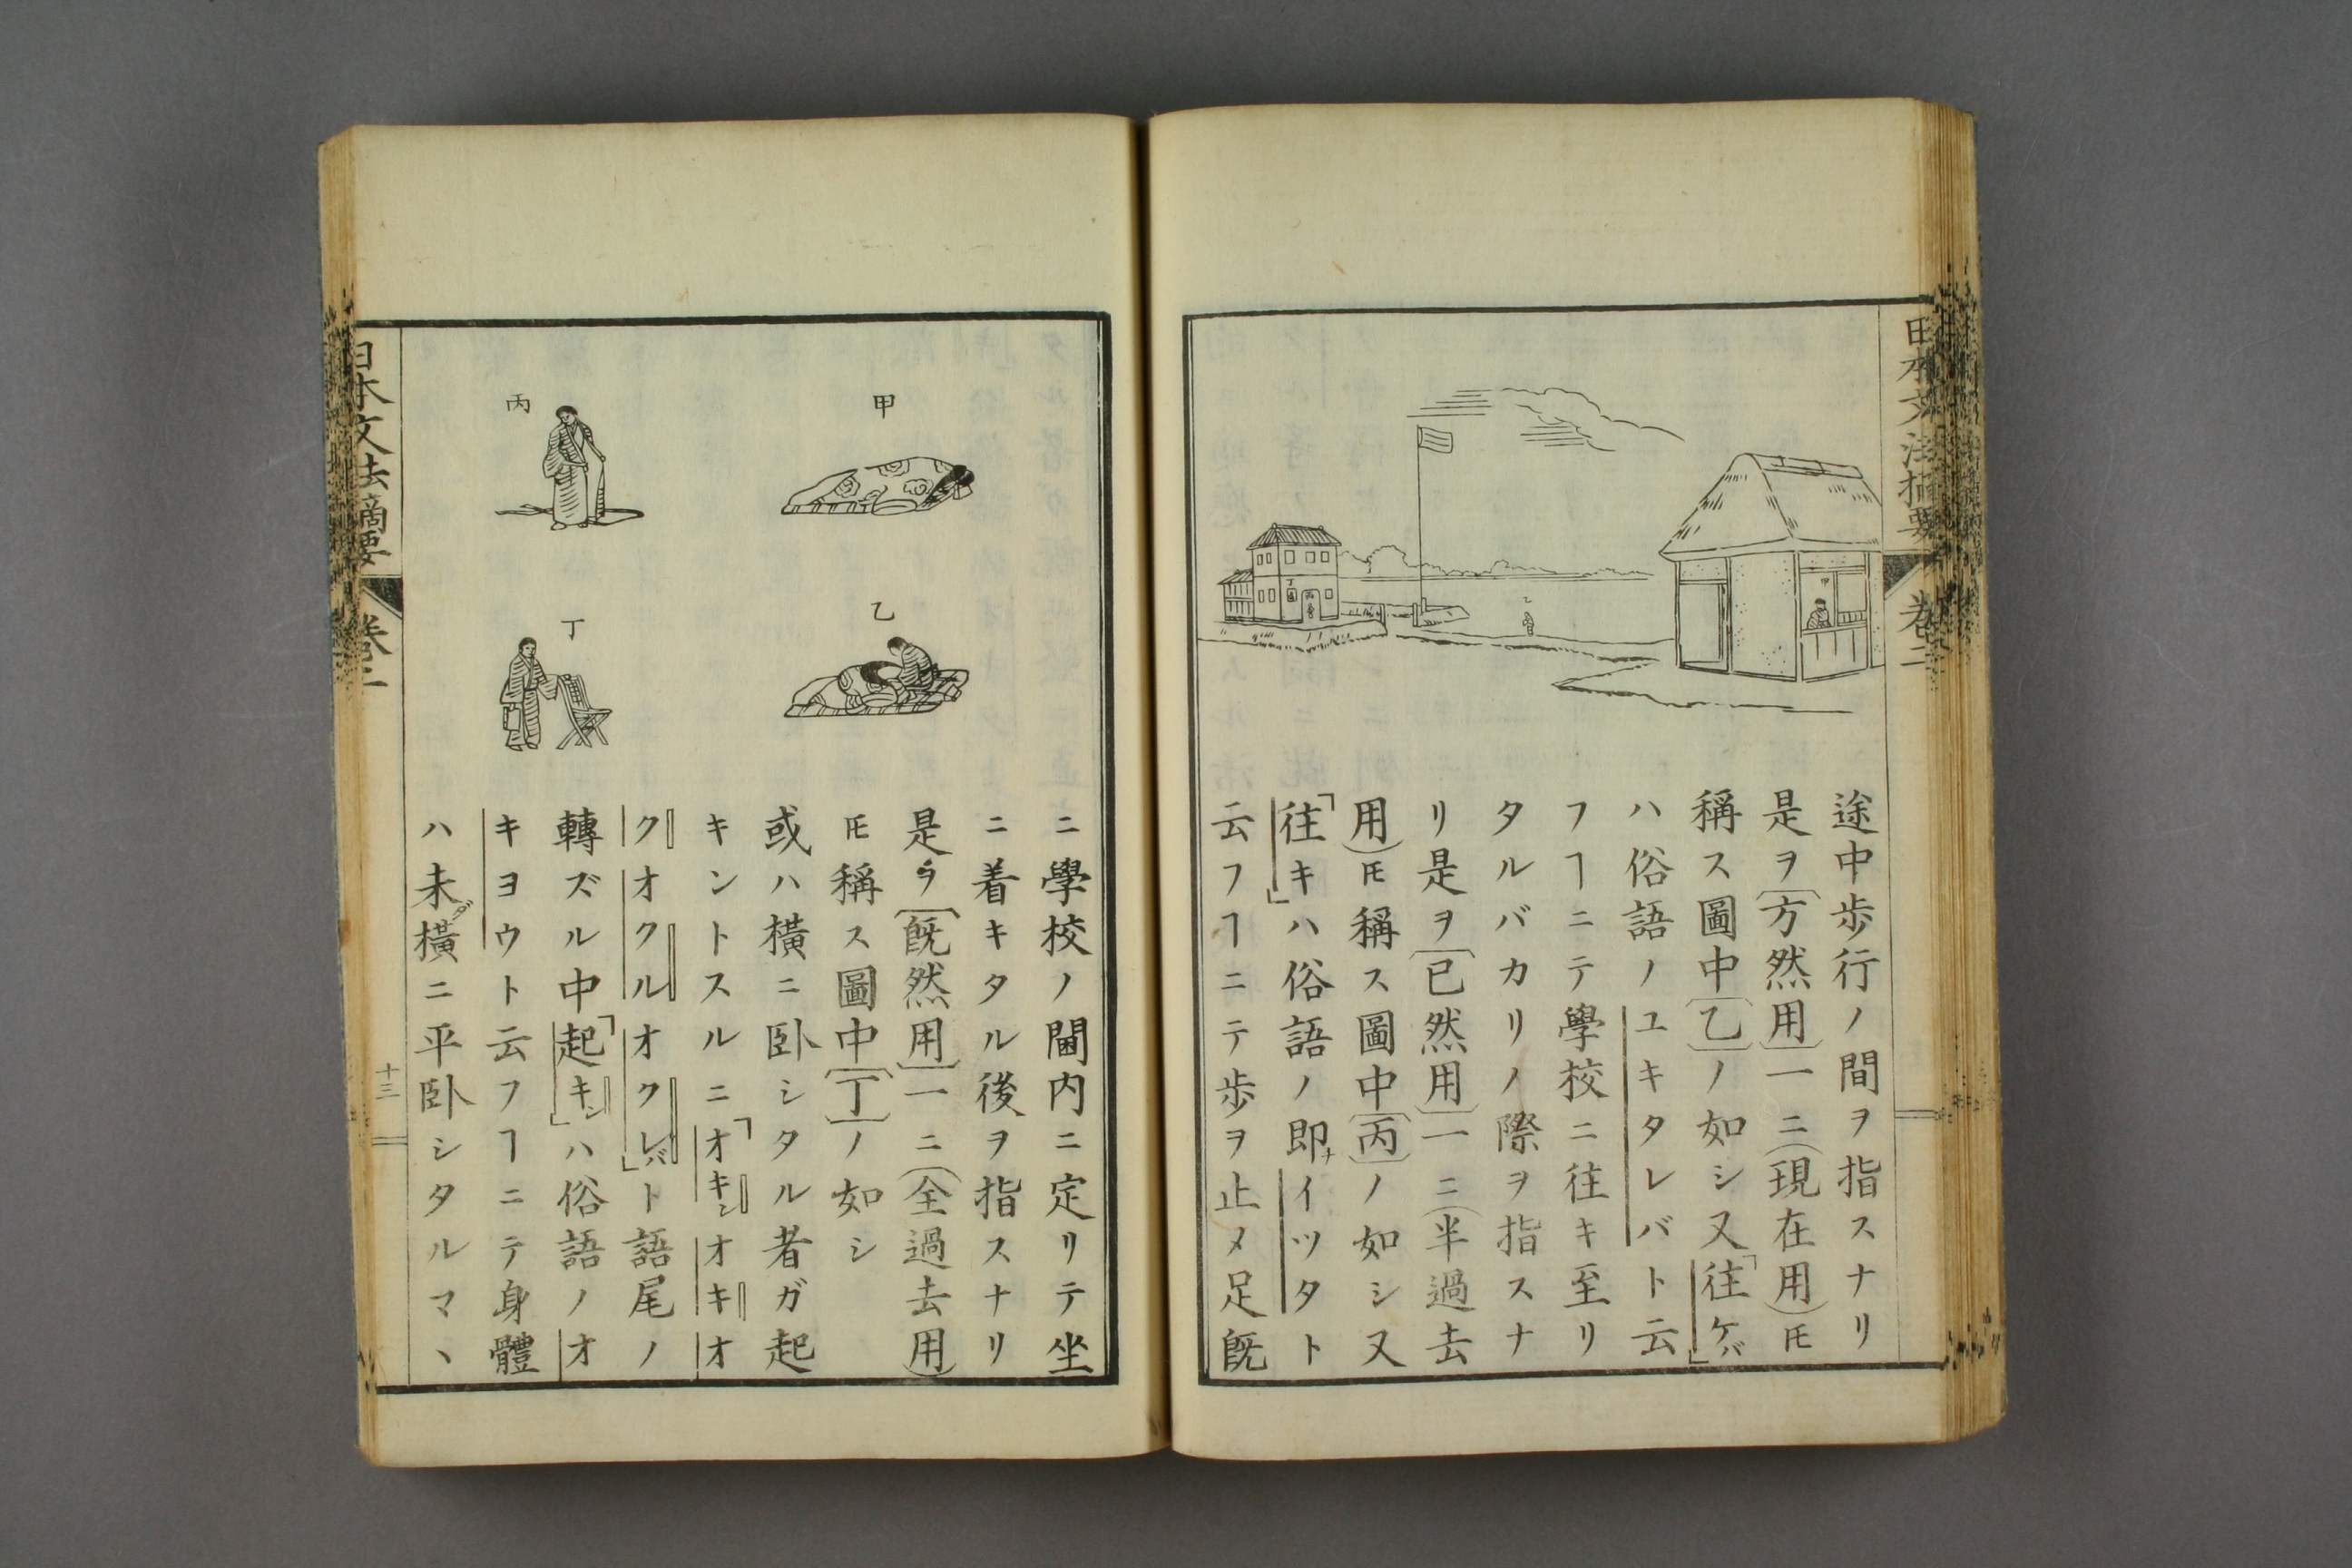 日本文法摘要
巻二
甲
乙
丙
丁
途中歩行ノ間ヲ指スナリ
是ヲ〔方然用〕一ニ(現在用)𪜈
稱ス圖中〔乙〕ノ如シ又「往ケバ」
ハ俗語ノユキタレバト云
フヿニテ學校ニ往キ至リ
タルバカリノ際ヲ指スナ
リ是ヲ〔已然用〕一ニ(半過去
用)𪜈稱ス圖中〔丙〕ノ如シ又
「往キ」ハ俗語ノ即ナイツタト
云フヿニテ歩ヲ止メ足既
甲
乙
丙
丁
ニ學校ノ閫内ニ定リテ坐
ニ着キタル後ヲ指スナリ
是ヲ〔既然用〕一ニ(全過去用)
𪜈稱ス圖中〔丁〕ノ如シ
或ハ横ニ臥シタル者ガ起
キントスルニ「オキンオキオ
クオクルオクレバ」ト語尾ノ
轉ズル中「起キン」ハ俗語ノオ
キヨウト云フヿニテ身體
ハ未ダ横ニ平臥シタルマヽ
日本文法摘要
巻二
十三